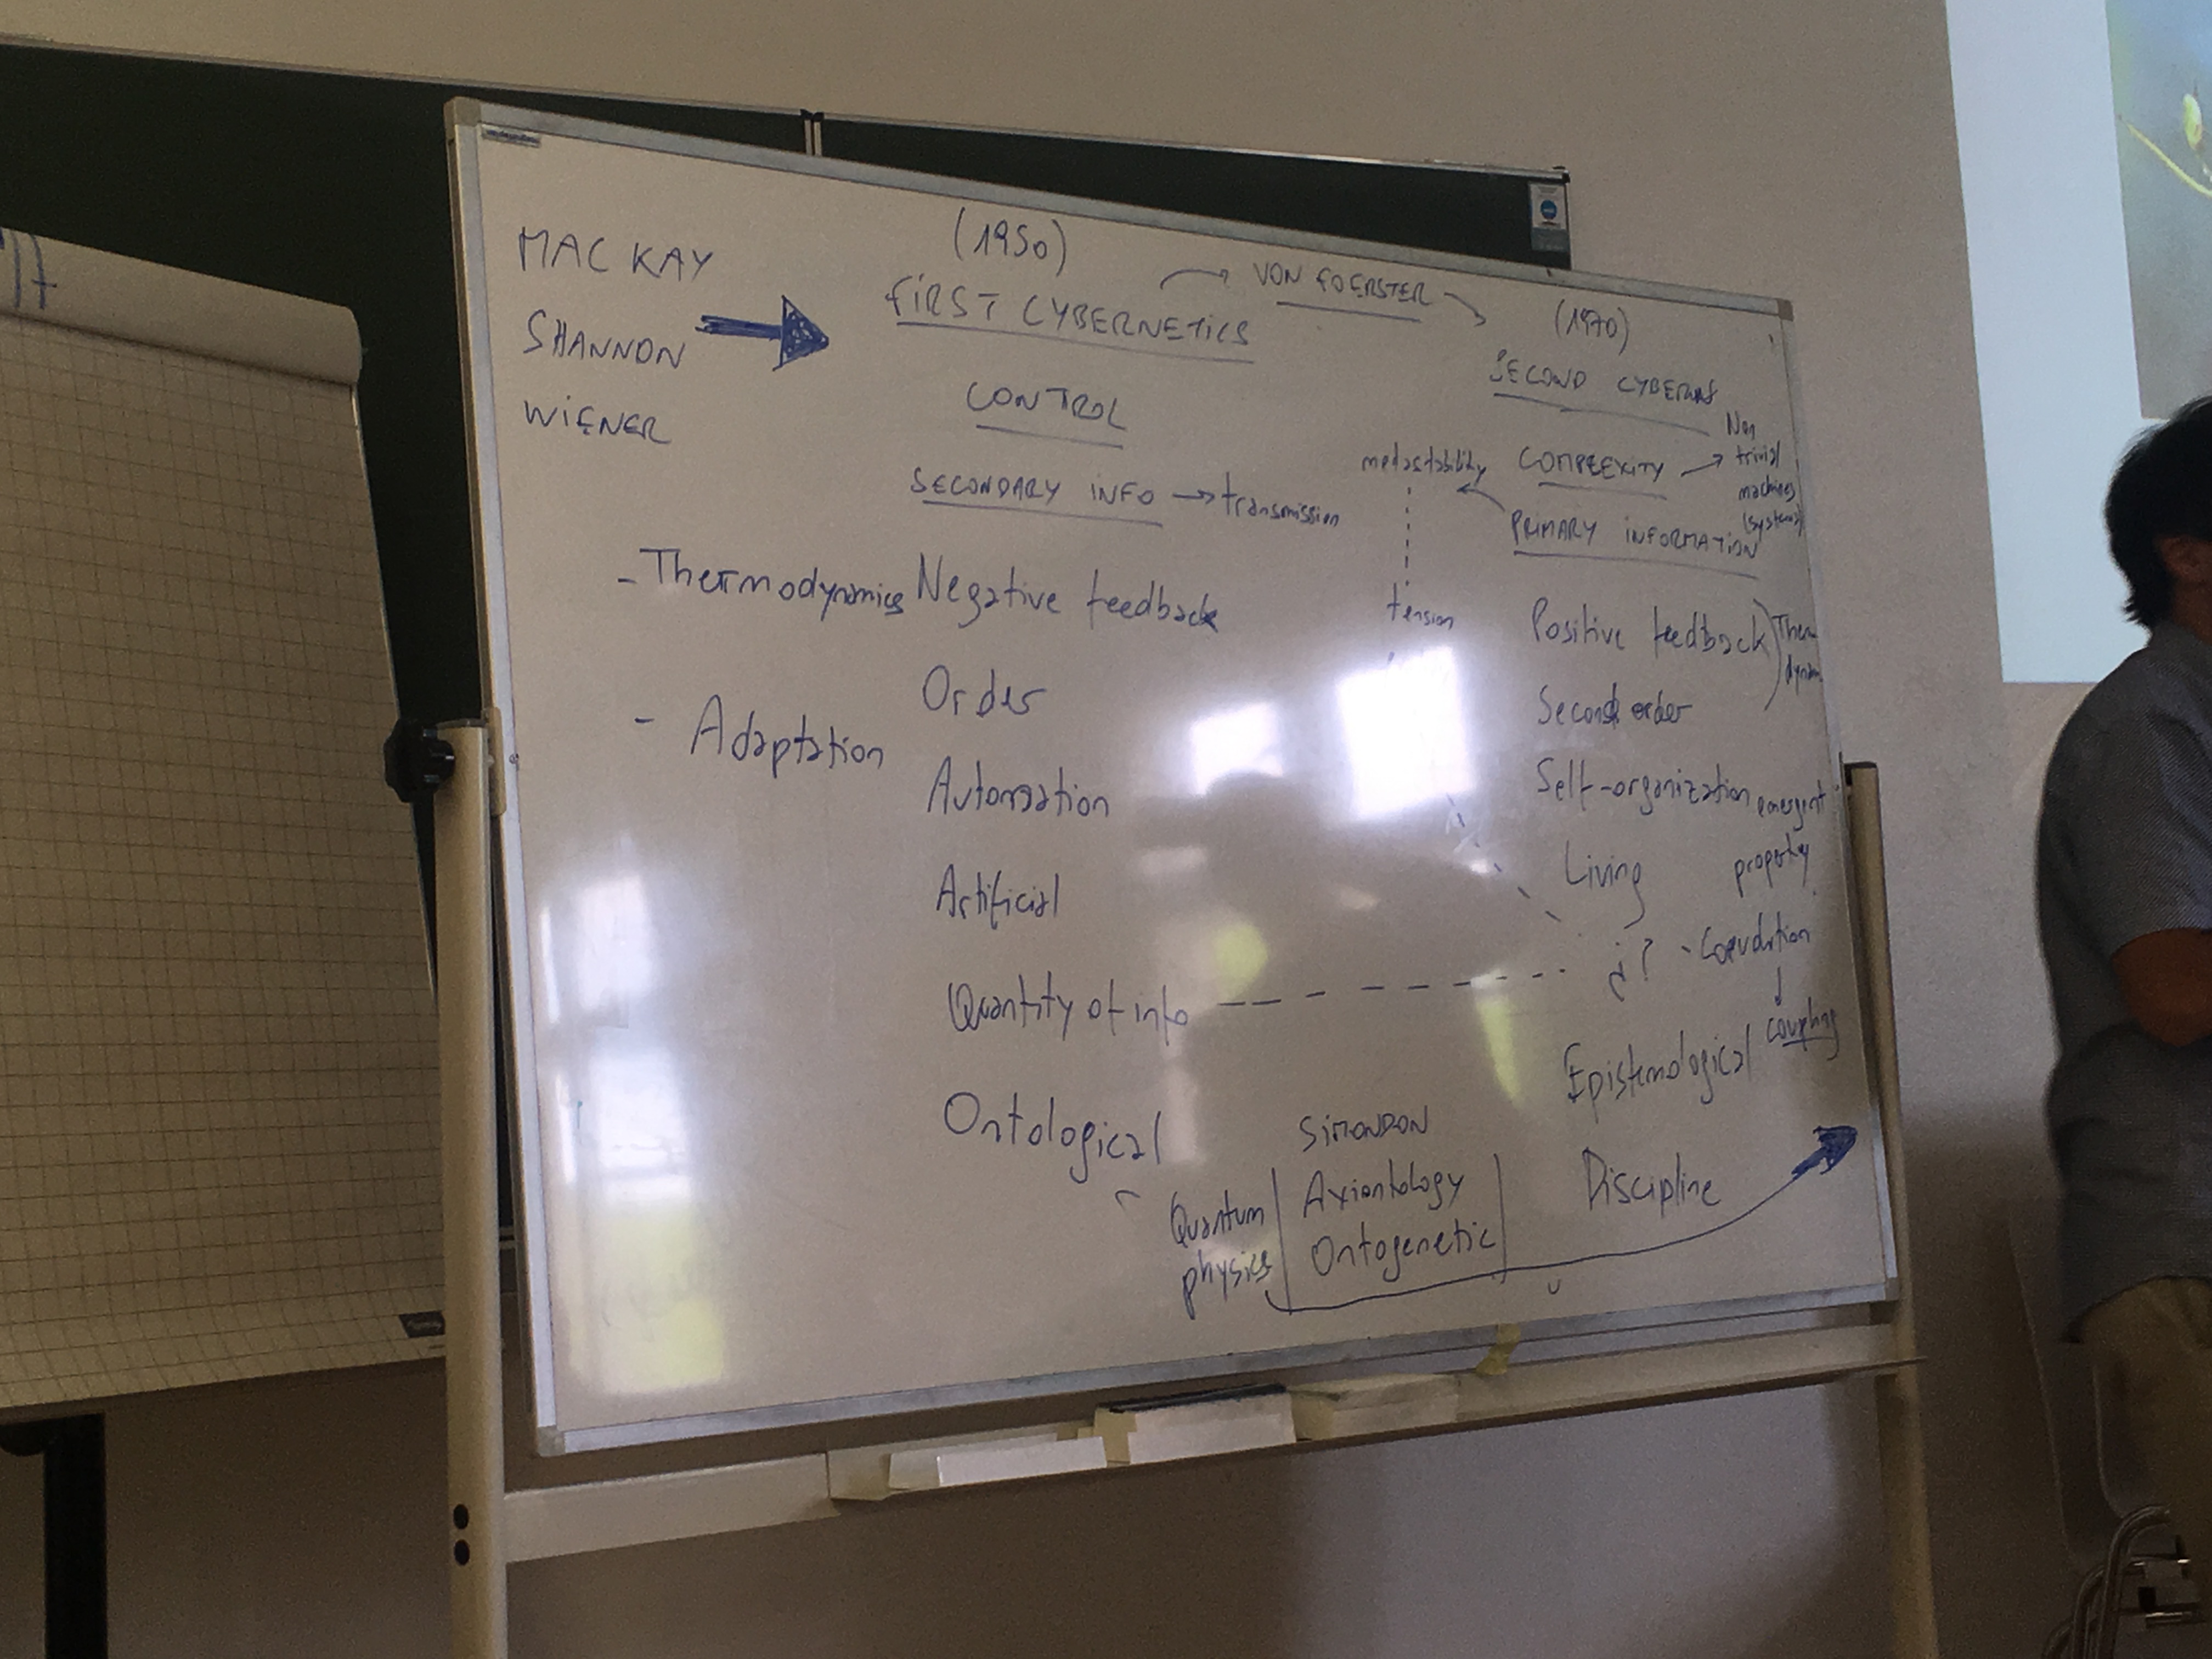 MAC KAY
SHANNON
WIENER
(1950)
FIRST CYBERNETICS
VON FOERSTER
(1970)
SECOND CYBERN
CONTROL
SECONDARY INFO → transmission
metastability
tension
COMPLEXITY
Non
trivial
machines
(systems)
PRIMARY INFORMATION
- Thermodynamics
- Adaptation
Negative feedback
Order
Automation
Artificial
Quantity of info
Ontological
Positive feedback
Thermo
dynam
Second order
Self-organization
emergent
property
Living
¿?
- Coevolution
↓
coupling
Epistemological
Discipline
Quantum
physics
SIMONDON
Axiontology
Ontogenetic